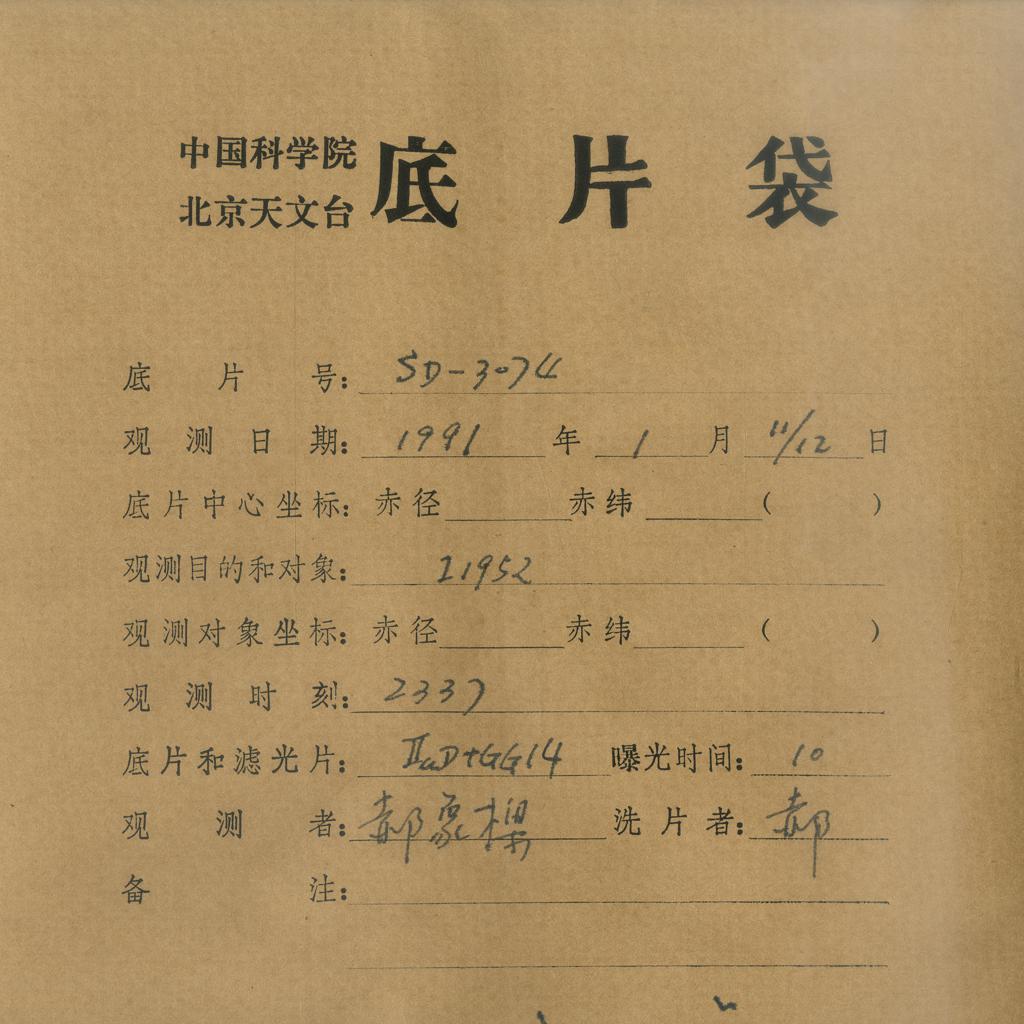 中国科学院
北京天文台 底片袋
底片号: SD-3074
观测日期: 1991 年 1 月 11/12 日
底片中心坐标: 赤径 赤纬 ( )
观测目的和对象: I1952
观测对象坐标: 赤径 赤纬 ( )
观测时刻: 2337
底片和滤光片: IIaD+GG14 曝光时间: 10
观测者: 郝象樑 洗片者: 郝
备注: